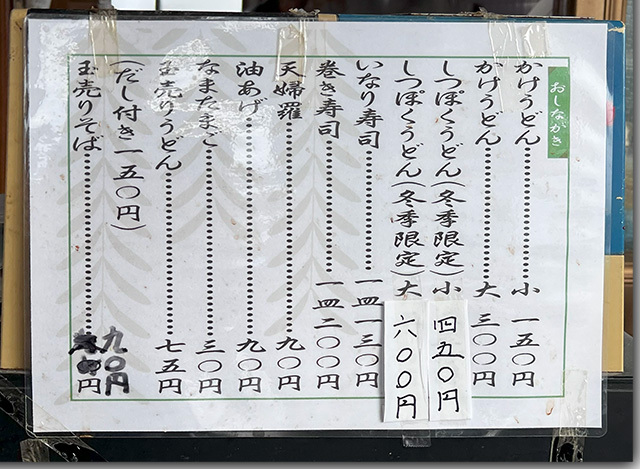 おしながき
かけうどん………小 一五〇円
かけうどん………大 三〇〇円
しっぽくうどん(冬季限定)小 四五〇円
しっぽくうどん(冬季限定)大 六〇〇円
いなり寿司………一皿 一三〇円
巻き寿司………一皿 二〇〇円
天婦羅………九〇円
油あげ………九〇円
なまたまご………三〇円
玉売りうどん………七五円
(だし付き一五〇円)
玉売りそば………九〇円